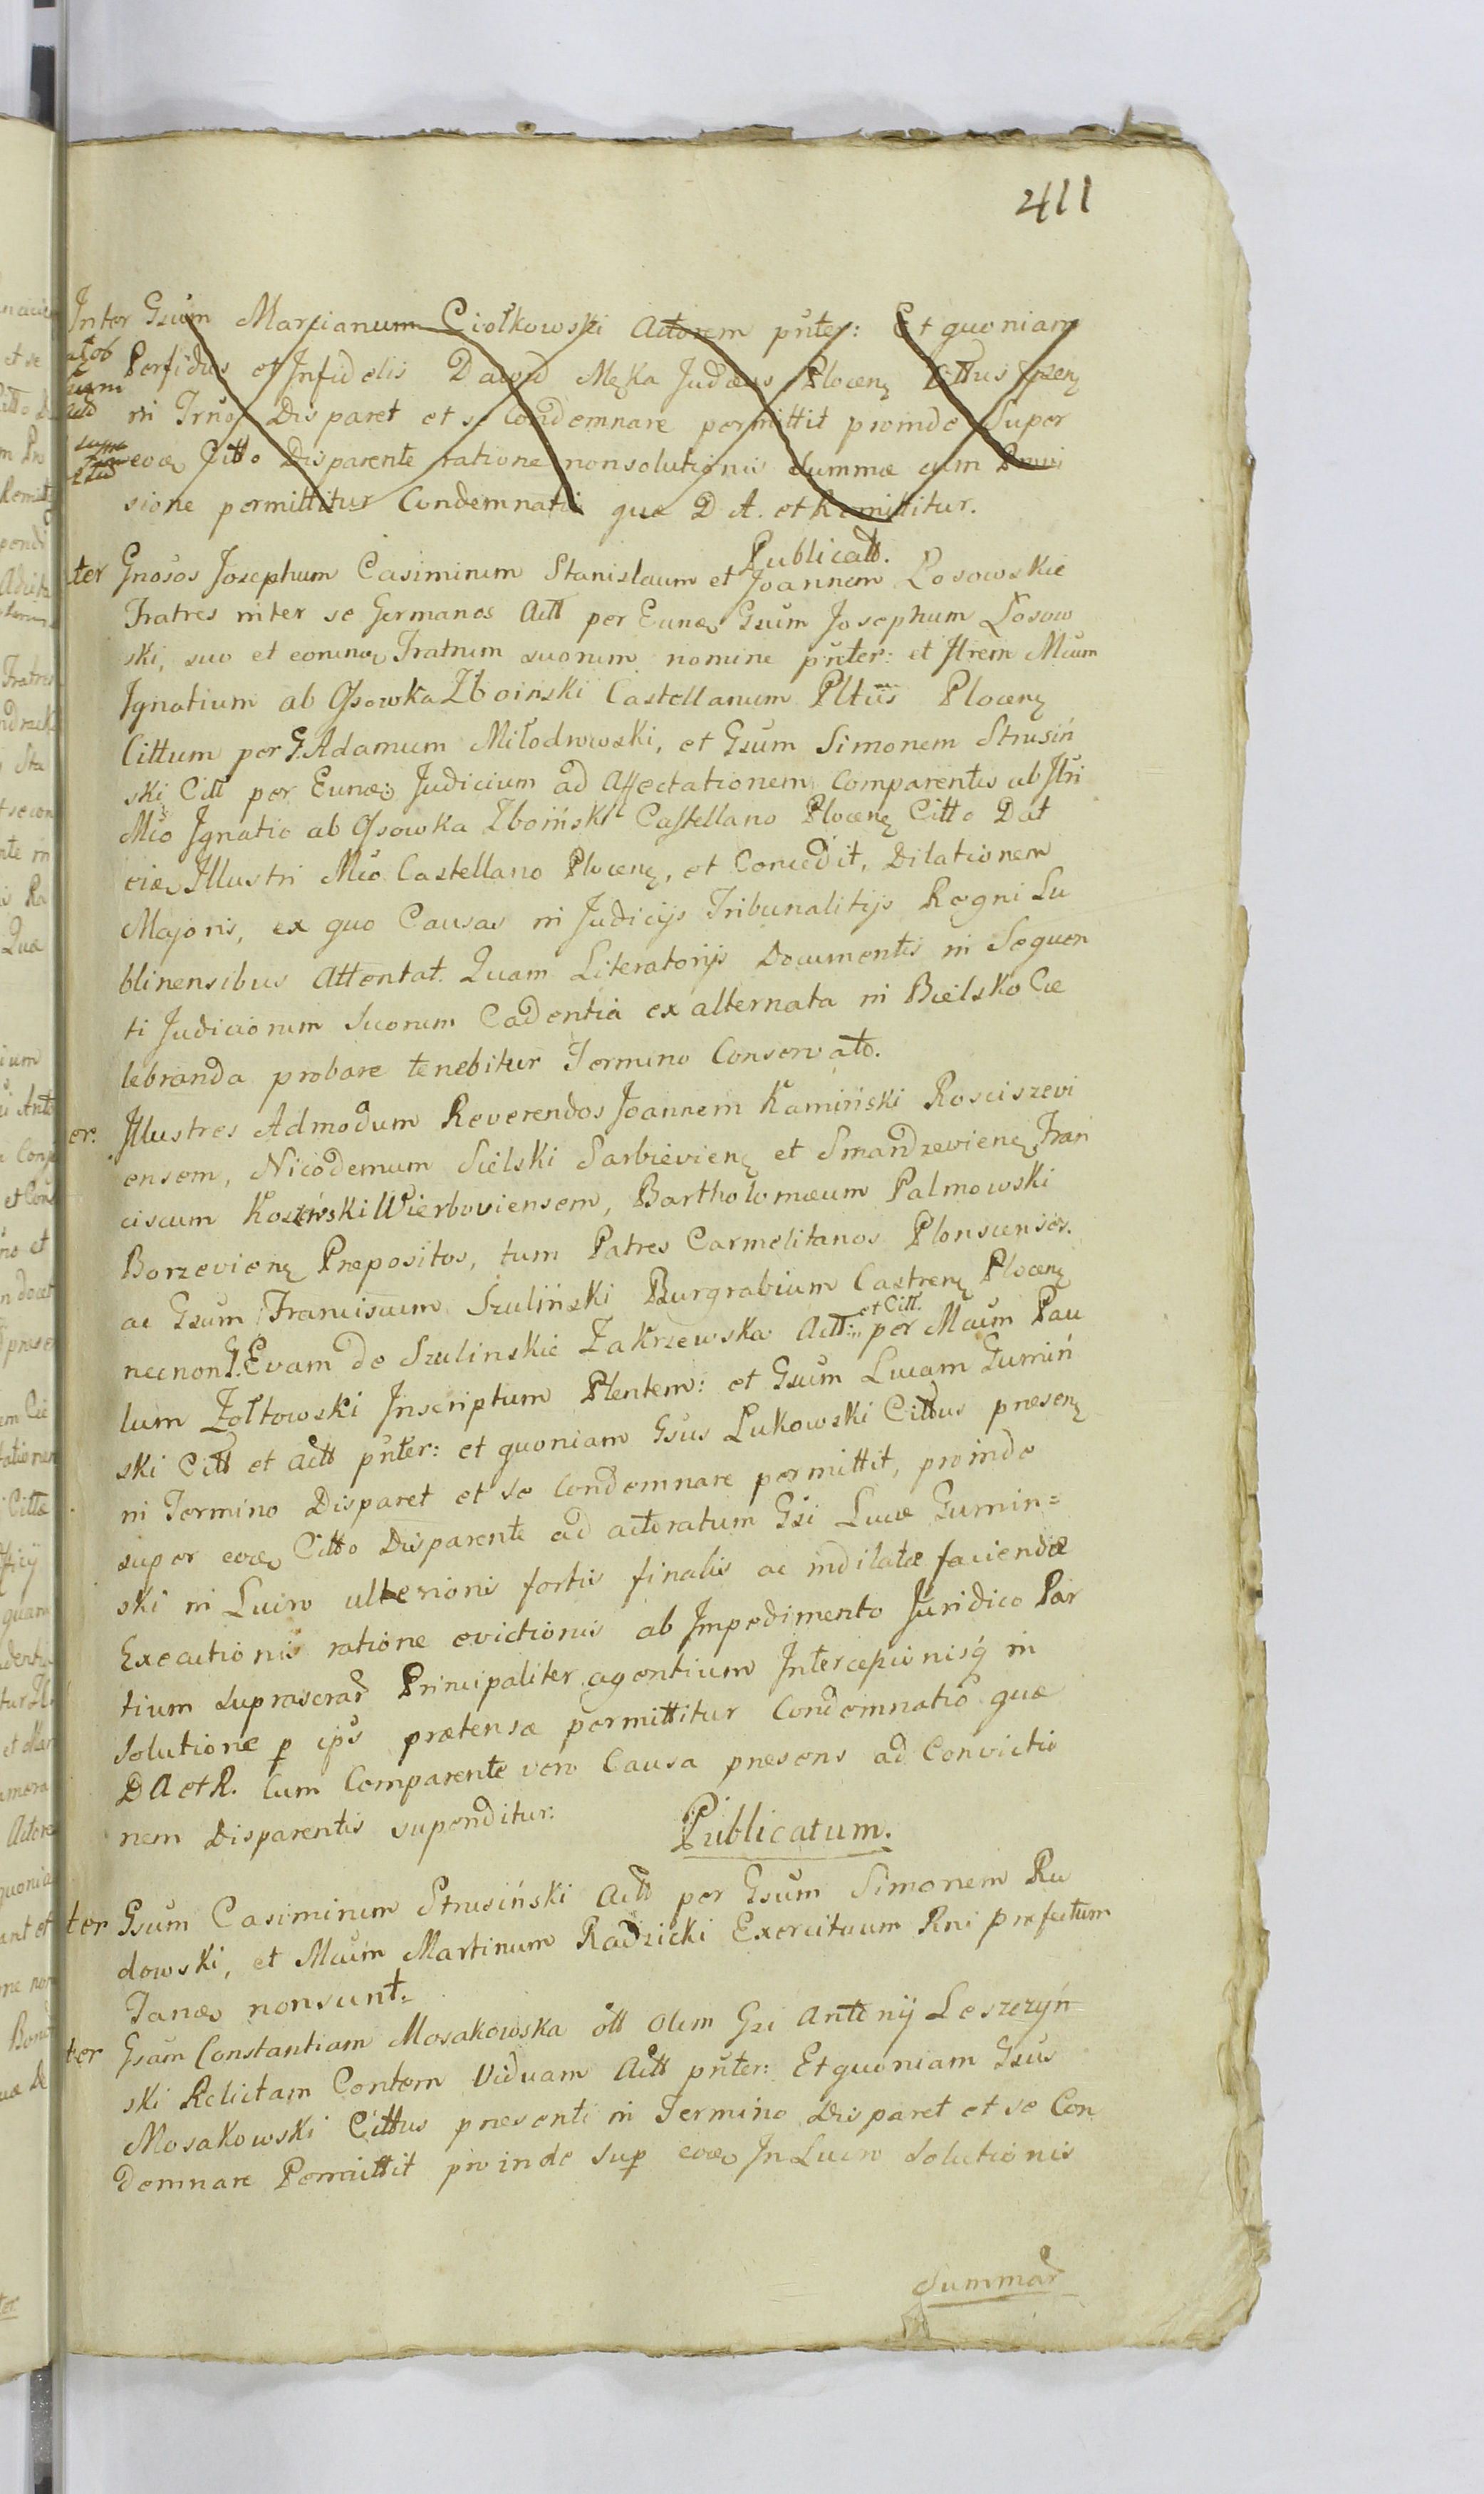 411
Inter Gsum Marcianum Ciołkowski Actorem pñter: Et quoniam
Perfidus et Infidelis Dawid Męka Judæus Plocen Cittus
in Trño Disparet et se Condemnare permittit proinde Super
Citto Disparente ratione nonsolutionis Summæ cum Provi
sione permittitur Condemnatio quæ D A. et Remittitur.
Publicatt.
ter Gnosos Josephum Casimirum Stanislaum et Joannem Łosowskie
Fratres inter se Germanos Actt per Eunde Gsum Josephum Łosow
ski, suo et eorund Fratrum suorum nomine pñter: et Jllrem Mcum
Ignatium ab Osowka Zboinski Castellanum Pltus Plocen
Cittum per G. Adamum Miłodrowski, et Gsum Simonem Strusiń
ski Citt per Eunde Judicium ad Affectationem Comparentis ab Jllri
Mco Ignatio ab Osowka Zboiński Castellano Plocen Citto Dat
Illustri Mco Castellano Plocen, et Concedit, Dilationem
Majoris, ex quo Causas in Judicijs Tribunalitijs Regni Lu
blinensibus Attentat. Quam Literatorijs Documentis in Sequen
ti Judiciorum Suorum Cadentia ex alternata in Bielsko Ce
lebranda probare tenebitur Termino Conservato.
er: Illustres Admodum Reverendos Joannem Kamiński Rosciszevi
ensem, Nicodemum Sielski Sarbievien et Smardzevien, Fran
ciscum Koziński Wierboviensem, Bartholomæum Palmowski
Borzevien Prepositos, tum Patres Carmelitanos Plonscenses.
ac Gsum Franciscum Szuliński Burgrabium Castren Plocen
necnon G. Evam de Szulinskie Zakrzewska Actt: et Citt. per Mcum Pau
lum Zołtowski Inscriptum Plentem: et Gsum Lucam Gumiń
ski Citt et Actt pñter: et quoniam Gsus Łukowski Cittus presen
in Termino Disparet et se Condemnare permittit, proinde
super Citto Disparente ad actoratum Gsi Lucæ Gumin=
ski in Lucro ulterioris fortis finalis ac indilatæ faciendæ
Executionis ratione evictionis ab Impedimento Juridico Par
tium suprascrar Principaliter agentium Intercepionisq in
Solutione p ips prætensæ permittitur Condemnatio quæ
D A et R. Cum Comparente vero Causa presens ad Convictio
nem Disparentis suponditur:
Publicatum.
ter Gsum Casimirum Strusiński Actt per Gsum Simonem Ru
dowski, et Mcum Martinum Radzicki Exercituum Rni præfectum
Janæ nonsunt.
ter Gsam Constantiam Mosakowska ott olim Gsi Antonij Leszczyń
ski Relictam Contem Viduam Actt pñter: Et quoniam Gsus
Mosakowski Cittus presenti in Termino Disparet et se Con
demnare Permittit proinde Sup In Lucro Solutionis
Summar